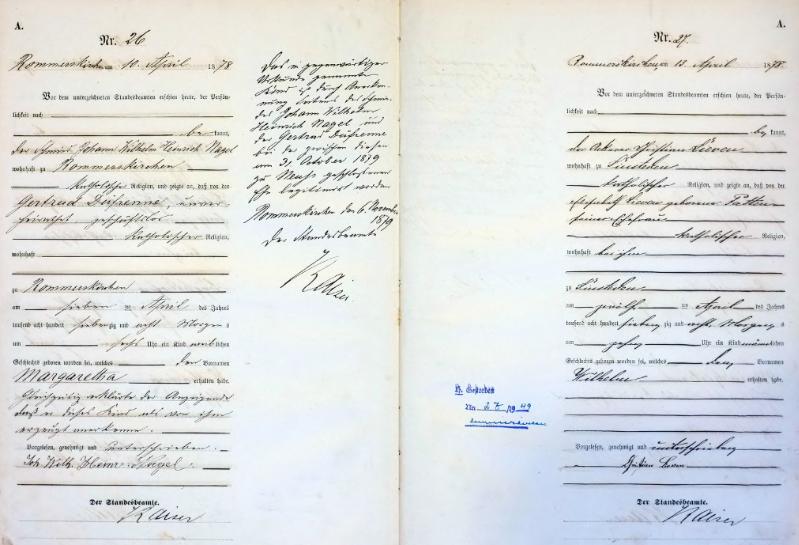 A.
Nr. 26
Rommerskirchen 10. April 1878
Vor dem unterzeichneten Standesbeamten erschien heute, der Persön-
lichkeit nach
be kannt,
der Johann Wilhelm Heinrich Nagel
wohnhaft zu Rommerskirchen
katholischer Religion, und zeigte an, daß von der
Gertrud unver-
heirathet geschäftslos
katholischer Religion,
wohnhaft
zu Rommerskirchen
am sieben ten April des Jahres
tausend acht hundert siebenzig und acht Morgens
um sechs Uhr ein Kind weiblichen
Geschlechts geboren worden sei, welches den Vornamen
Margaretha erhalten habe.
Gleichzeitig erklärte der Anzeigende
daß er dieses Kind als von ihm
erzeugt anerkenne.
Vorgelesen, genehmigt und unterschrieben.
Joh. Wilh. Heinr. Nagel.
Der Standesbeamte.
Kaiser
Das in gegenwärtiger
Urkunde genannte
Kind ist durch Anerken-
nung Seitens des
des Johann Wilhelm
Heinrich Nagel und
der Gertrud
bei der zwischen diesen
am 31 October 1879
zu Neuss geschlossenen
Ehe legitimirt worden
Rommerskirchen den 6. November
1879
Der Standesbeamte
Kaiser
A.
Nr. 27.
Rommerskirchen 13. April 1878.
Vor dem unterzeichneten Standesbeamten erschien heute, der Persön-
lichkeit nach
be kannt,
der Ackerer Christian
wohnhaft zu
katholischer Religion, und zeigte an, daß von der
Elisabeth geborene
seiner Ehefrau
katholischer Religion,
wohnhaft bei ihm
zu
am zwölf ten April des Jahres
tausend acht hundert siebenzig und acht Morgens
um zehn Uhr ein Kind männlichen
Geschlechts geboren worden sei, welches den Vornamen
Wilhelm erhalten habe.
Vorgelesen, genehmigt und unterschrieben
Der Standesbeamte.
Kaiser
Gestorben
Nr. 19 49